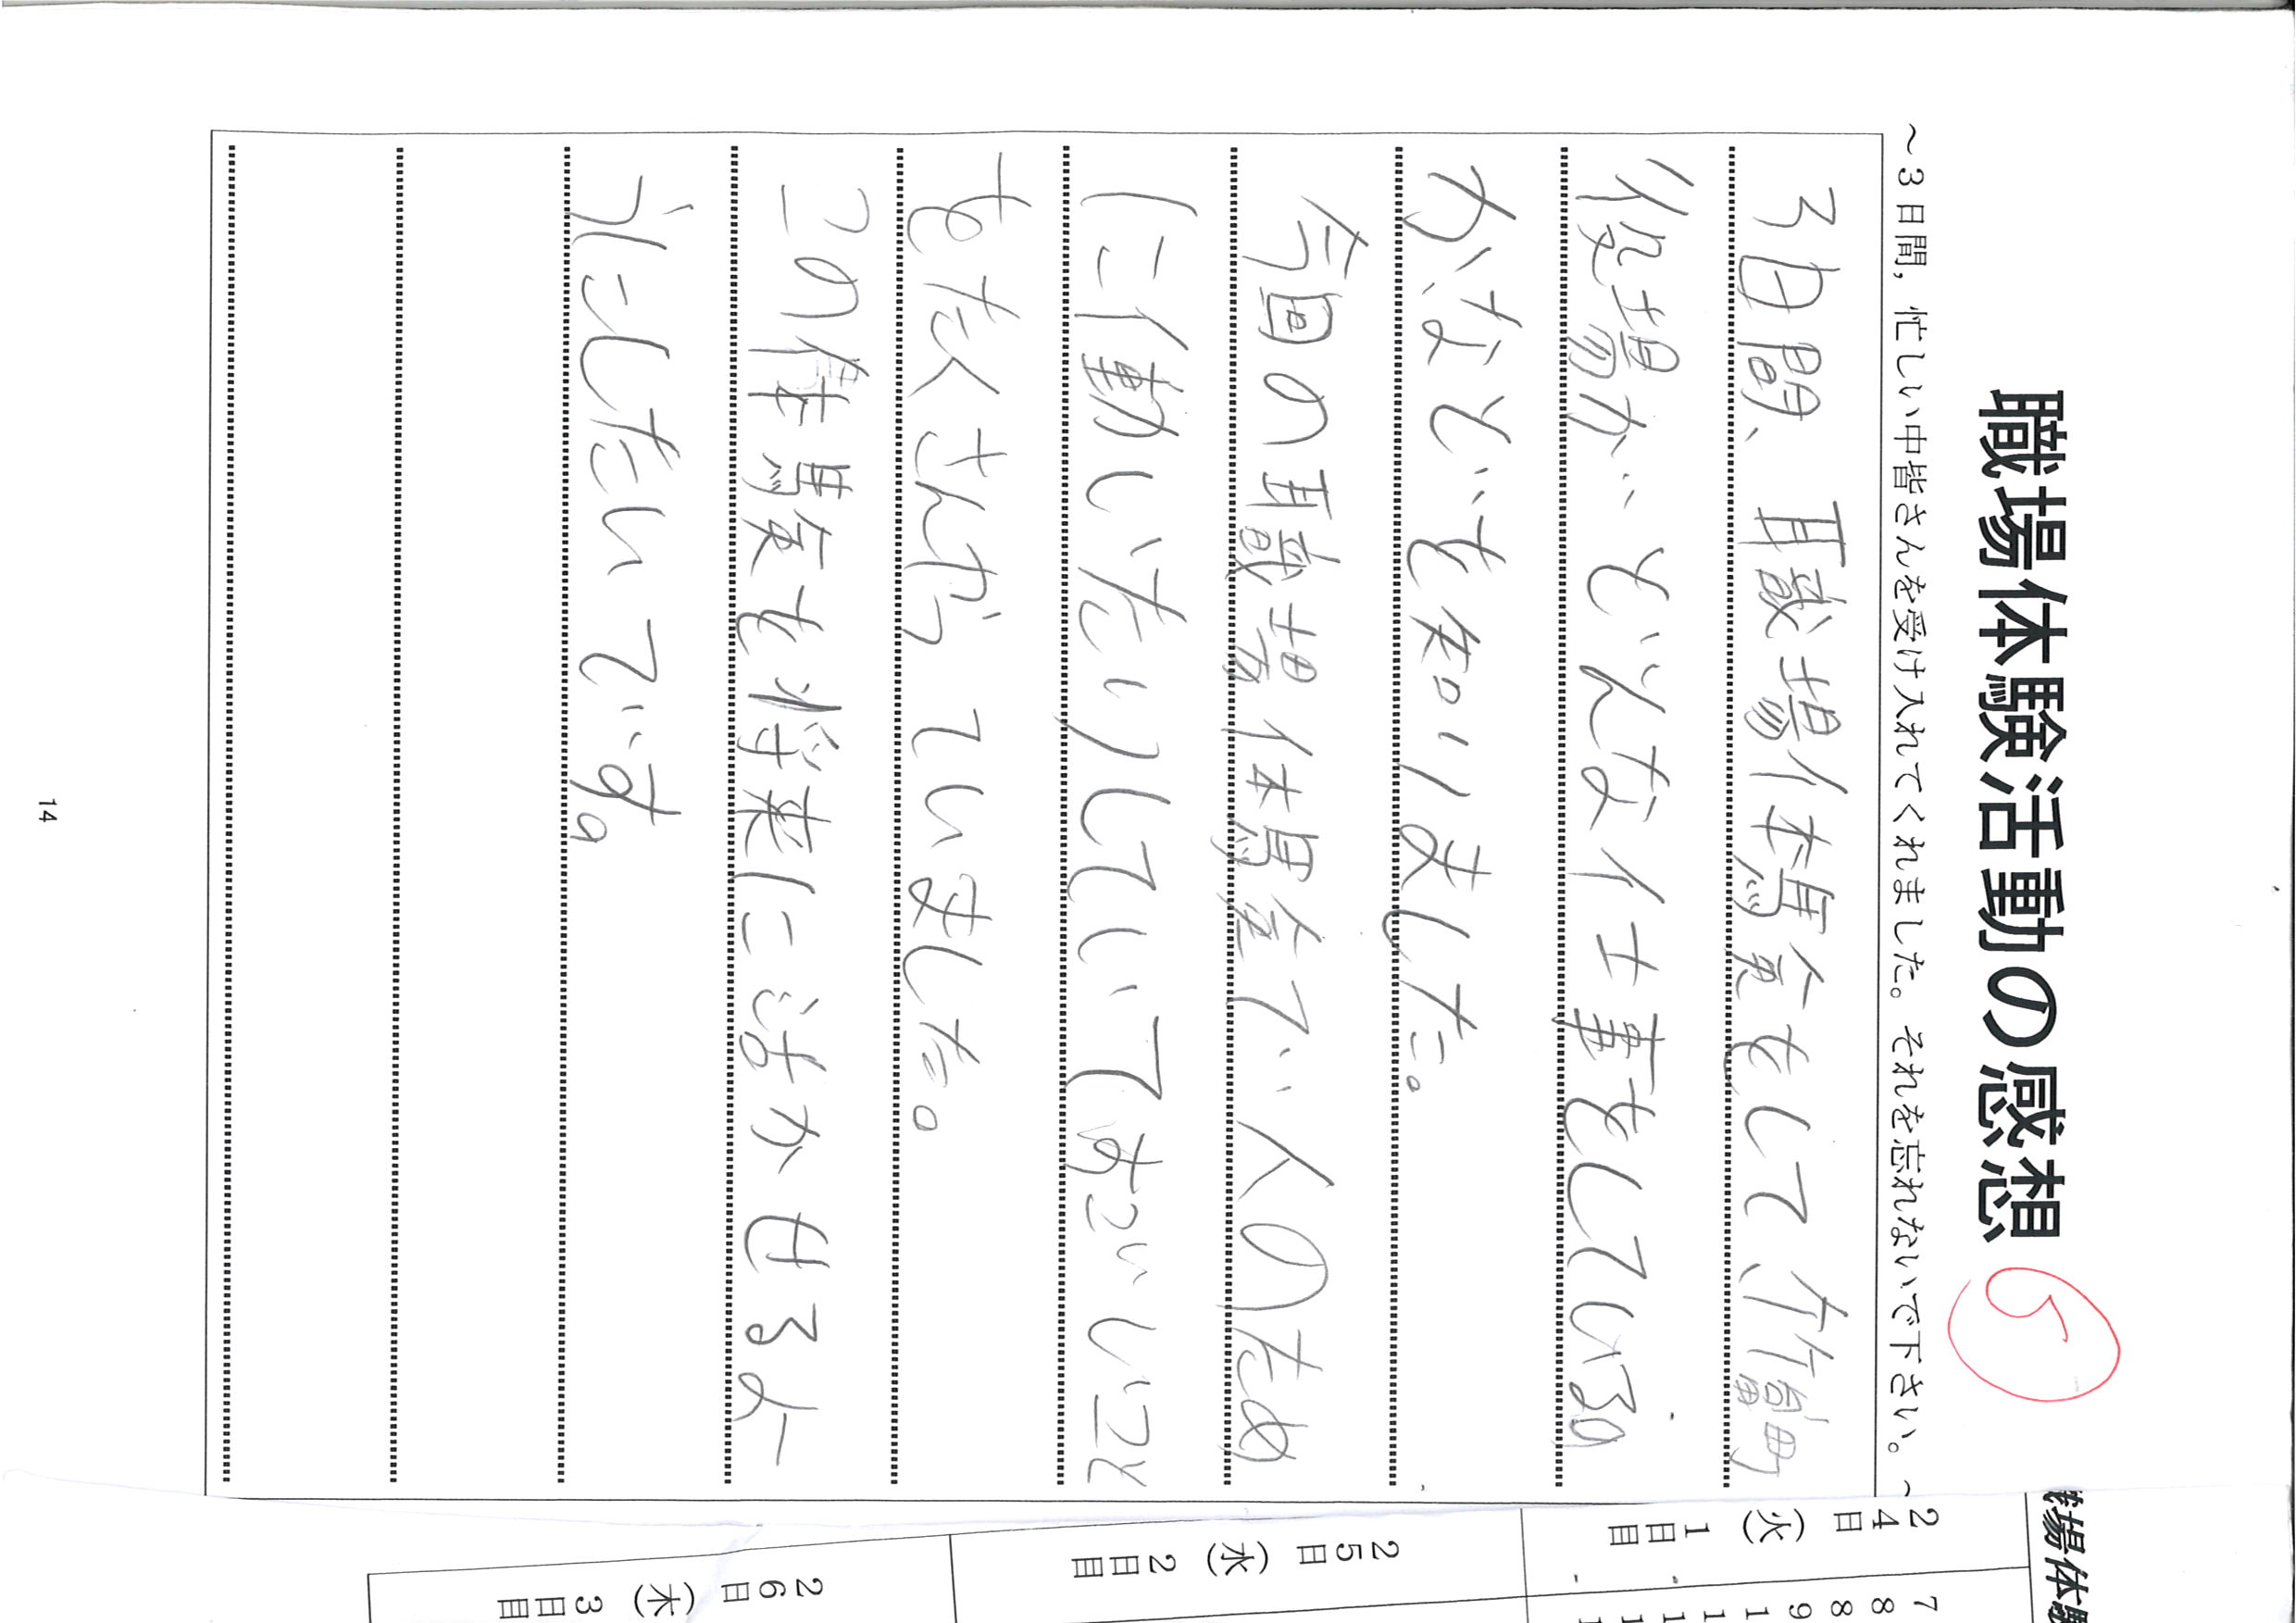 職場体験活動の感想
~3日間,忙しい中皆さんを受け入れてくれました。それを忘れないで下さい。~
3日間、職場体験をして、町
役場が、どんな仕事をしているの
かなどを知りました。
今回の職場体験で人のため
に働いたりしていてすごいいこと
をたくさんやっていました。
この体験を将来に活かせるよ
うにしたいです。
14
場体
24日(火)
1日目
25日(水)
2日目
26日(木)
3日目
7
8
8
9